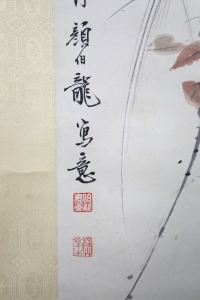 顏伯龍寫意